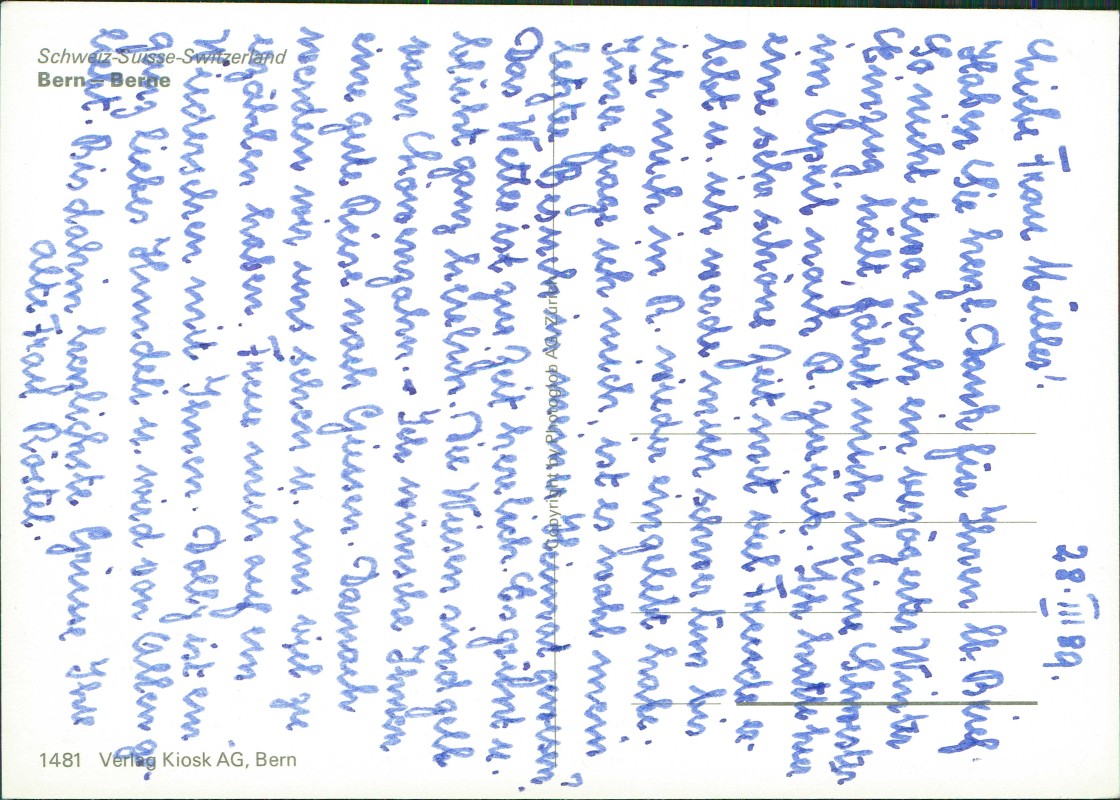 Schweiz-Suisse-Switzerland
Bern – Berne
1481 Verlag Kiosk AG, Bern
Copyright by Photoglob AG Zürich
28.III 89.
Liebe Frau Müller!
Haben Sie herzl. Dank für Ihren lb. Brief
nicht etwa noch ein verzögerter Winter
hält, fährt mich meine Schwester
im April nach A. zurück. Ich hatte hier
eine sehr schöne Zeit mit viel Freude u.
u. ich werde mich schwer tun bis
ich mich in A. wieder eingelebt habe.
frage ich mich ist es wohl mein
letzter Besuch
Das Wetter ist zur Zeit herrlich. Es grünt u.
blüht ganz herrlich. Die Wiesen sind gelb
vom Löwenzahn. Ich wünsche Ihnen
eine gute Reise nach Danach
werden wir uns sehen u. uns viel zu
erzählen haben. Freue mich auf ein
Wiedersehen mit Ihnen. Dolly ist ein
ganz liebes Hündeli u. wird von Allen ge-
liebt. Bis dahin herzlichste Grüsse Ihre
alte Frau